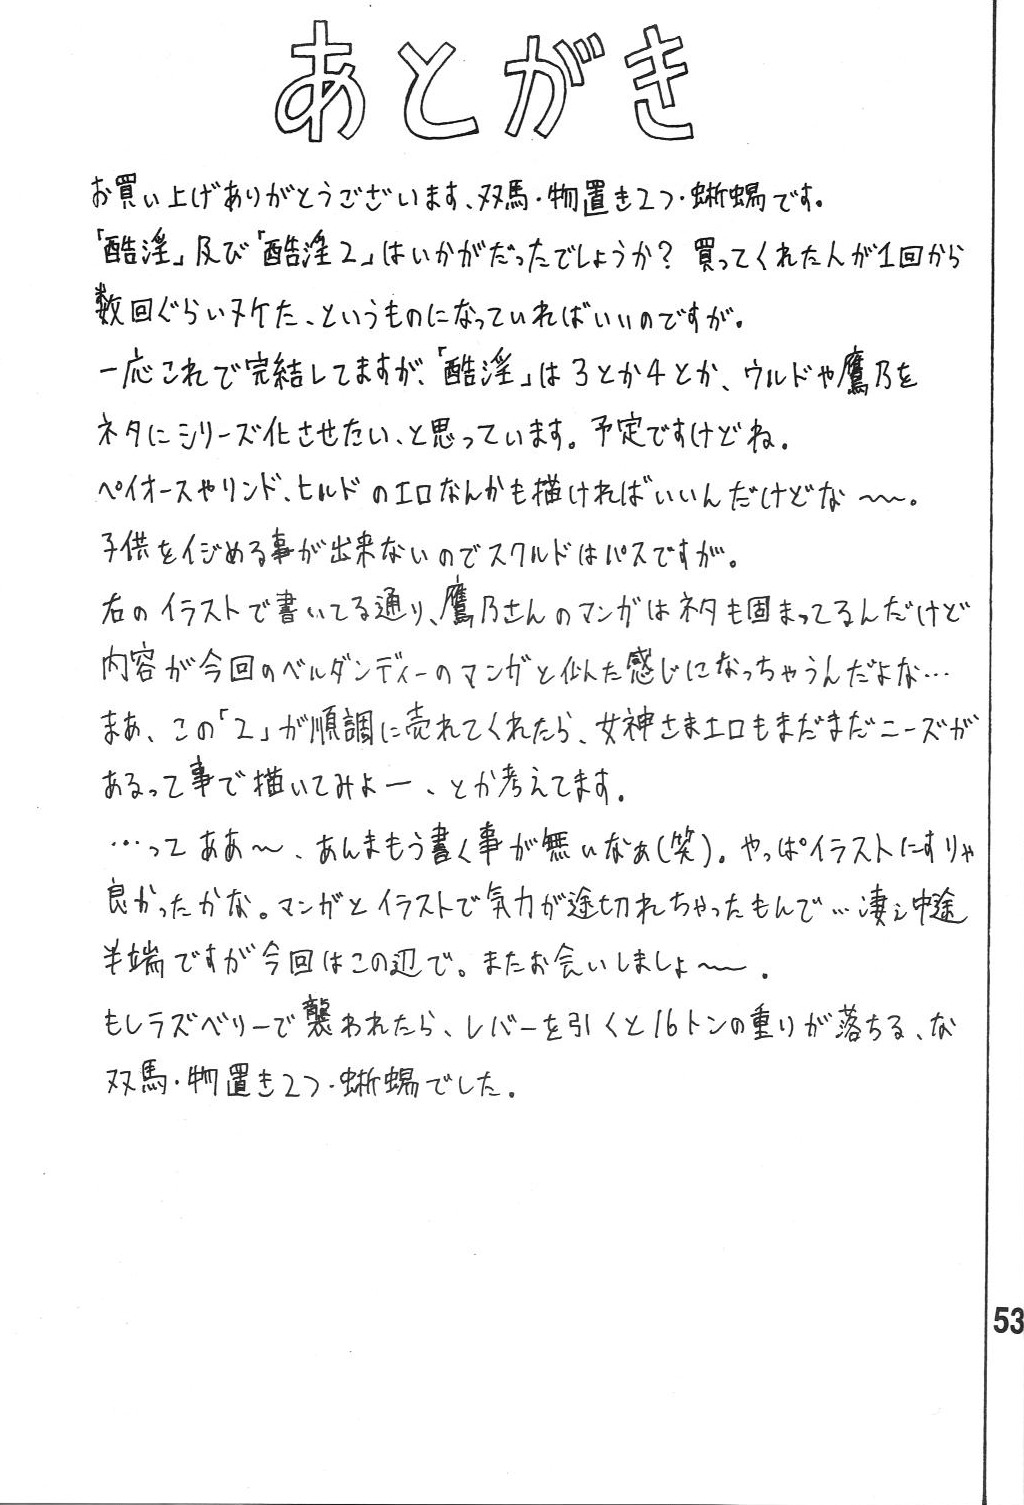 あとがき
お買い上げありがとうございます、双馬・物置き2つ・蜥蜴です。
「酷淫」及び「酷淫2」はいかがだったでしょうか?買ってくれた人が1回から
数回ぐらいヌケた、というものになっていればいいのですが。
一応これで完結してますが、「酷淫」は3とか4とか、ウルドや鷹乃を
ネタにシリーズ化させたい、と思っています。予定ですけどね。
ペイオースやリンド、ヒルドのエロなんかも描ければいいんだけどな〜〜。
子供をイジめる事が出来ないのでスクルドはパスですが。
右のイラストで書いてる通り、鷹乃さんのマンガはネタも固まってるんだけど
内容が今回のベルダンディーのマンガと似た感じになっちゃうんだよな…
まあ、この「2」が順調に売れてくれたら、女神さまエロもまだまだニーズが
あるって事で描いてみよー、とか考えてます。
…って ああ〜、あんまもう書く事が無いなぁ(笑)。やっぱイラストにすりゃ
良かったかな。マンガとイラストで気力が途切れちゃったもんで…凄ェ中途
半端ですが今回はこの辺で。またお会いしましょ〜〜。
もしラズベリーで襲われたら、レバーを引くと16トンの重りが落ちる、な
双馬・物置き2つ・蜥蜴でした。
53